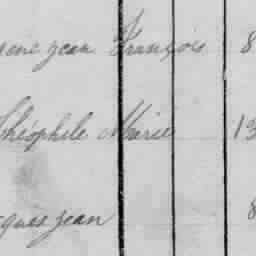 jean François 8
Théophile Marie 13
jean 8